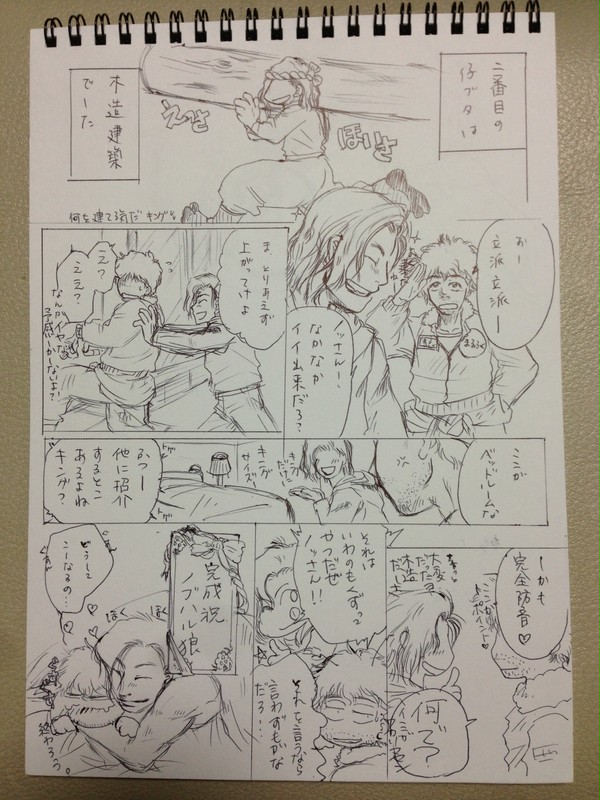 二番目の
仔ブタは
木造建築
でーた
えっさ
ほいさ
何を建てる気だ キング
おー
立派立派ー
ノッさんー!
なかなか
イイ出来だろ?
ま、とりあえず
上がってけよ
えっ
ええ?
なんかイヤな
予感しかしないよ?
ここが
ベッドルームな
キング
だけに
キング
サイズ
ふつー
他に紹介
するとこ
あるよね
キング?
しかも
完全防音♡
ここが
ポイント♡
何で?
大変
だったぞ
木造
だしさ
それは
いわのもくずって
やつだぜ
ノッさん!!
それを言うなら
言わずもがな
だろ…
完成祝
ノブハル狼
ほく
ほく
どうして
こーなるの…
終わろう。